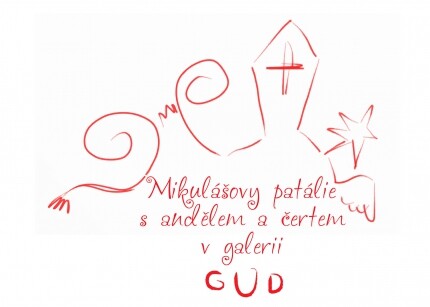 Mikulášovy patálie
s andělem a čertem
v galerii
GUD